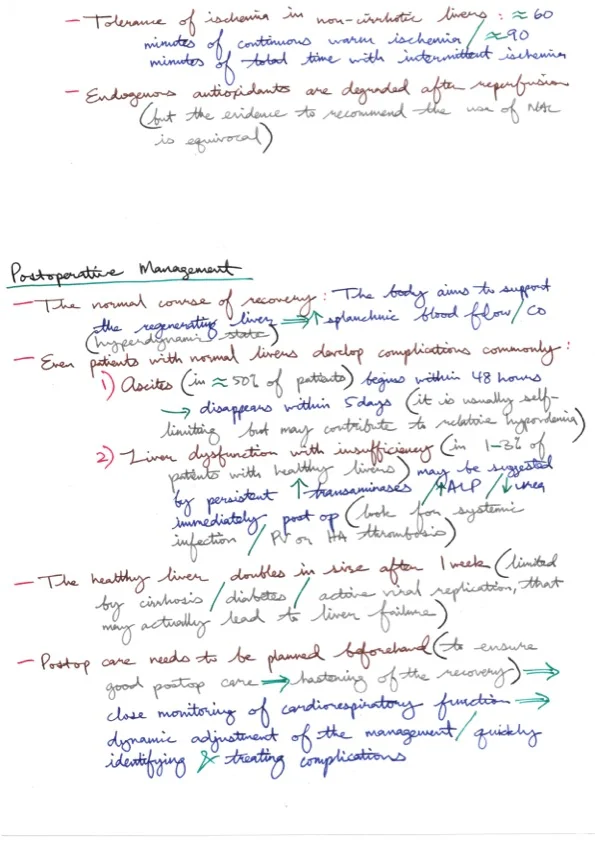 — Tolerance of ischemia in non-cirrhotic livers : ≈ 60
minutes of continuous warm ischemia / ≈ 90
minutes of total time with intermittent ischemia
— Endogenous antioxidants are degraded after reperfusion
(but the evidence to recommend the use of NAC
is equivocal)
Postoperative Management
— The normal course of recovery : The body aims to support
the regenerating liver ⟹ ↑ splanchnic blood flow / CO
(hyperdynamic state)
— Even patients with normal livers develop complications commonly :
1) Ascites (in ≈ 50% of patients) begins within 48 hours
→ disappears within 5 days (it is usually self-
limiting but may contribute to relative hypovolemia)
2) Liver dysfunction with insufficiency (in 1-3% of
patients with healthy livers) may be suggested
by persistent ↑ transaminases / ↑ ALP / ↓ urea
immediately post op (look for systemic
infection / PV or HA thrombosis)
— The healthy liver doubles in size after 1 week (limited
by cirrhosis / diabetes / active viral replication, that
may actually lead to liver failure)
— Postop care needs to be planned beforehand (to ensure
good postop care → hastening of the recovery) ⟹
close monitoring of cardiorespiratory function ⟹
dynamic adjustment of the management / quickly
identifying & treating complications